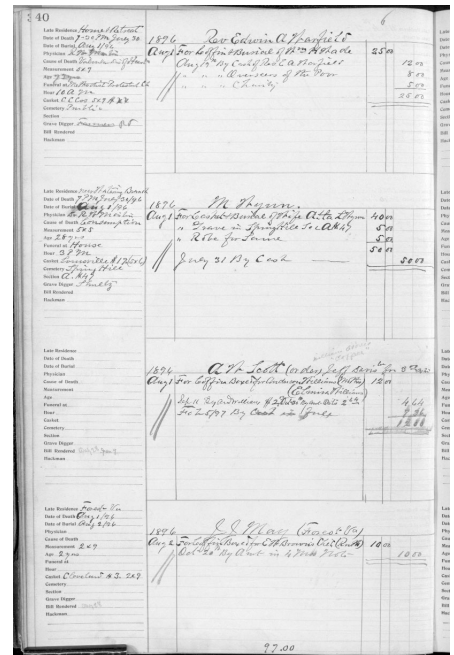 40
6
Late Residence Home Retreat
Date of Death 7-30 PM July 30
Date of Burial Aug 1/96
Physician
Cause of Death
Measurement 5x9
Age 72 yrs
Funeral at
Hour 10 A M
Casket C. C. Cos 5x9 # 28
Cemetery Public
Section
Grave Digger Farmers
Bill Rendered
Hackman
1896 Rev Edwin A Warfield
Aug 1 For Coffin & Burial of Shade 25 00
Aug By Cash of Rev E. A Warfield 12 00
" " " Overseers of the Poor 8 00
" " " Charity 5 00
25 00
Late Residence Branch
Date of Death 7 PM July 30/96
Date of Burial Aug 1/96
Physician Dr
Cause of Death Consumption
Measurement 5x8
Age 28 yrs
Funeral at House
Hour 3 P M
Casket Louisville # 12
Cemetery Spring Hill
Section A. # 47
Grave Digger
Bill Rendered
Hackman
1896 M Flynn.
Aug 1 For Casket & Burial of Wife Flynn 40 00
" Grave in Spring Hill Sec A # 47 5 00
" Robe for Same 5 00
50 00
July 31 By Cash 50 00
Late Residence
Date of Death
Date of Burial
Physician
Cause of Death
Measurement
Age
Funeral at
Hour
Casket
Cemetery
Section
Grave Digger
Bill Rendered
Hackman
1896 A. W. Scott (order Jeff Davis for
Aug 1 For Coffin Box for Anderson Williams 12 00
(Elmira Williams)
Sep 11 By 4 64
Feb 5/97 By Cash in full 7 36
12 00
Late Residence Forest Va
Date of Death Aug 1/96
Date of Burial Aug 2/96
Physician
Cause of Death
Measurement 2x9
Age 2 yrs
Funeral at
Hour
Casket Cleveland # 3 2x9
Cemetery
Section
Grave Digger
Bill Rendered
Hackman
1896 J. J. Mays (Forest Va)
Aug 2 For Coffin & Box for Browns Child 10 00
By Amt in Note 10 00
97.00